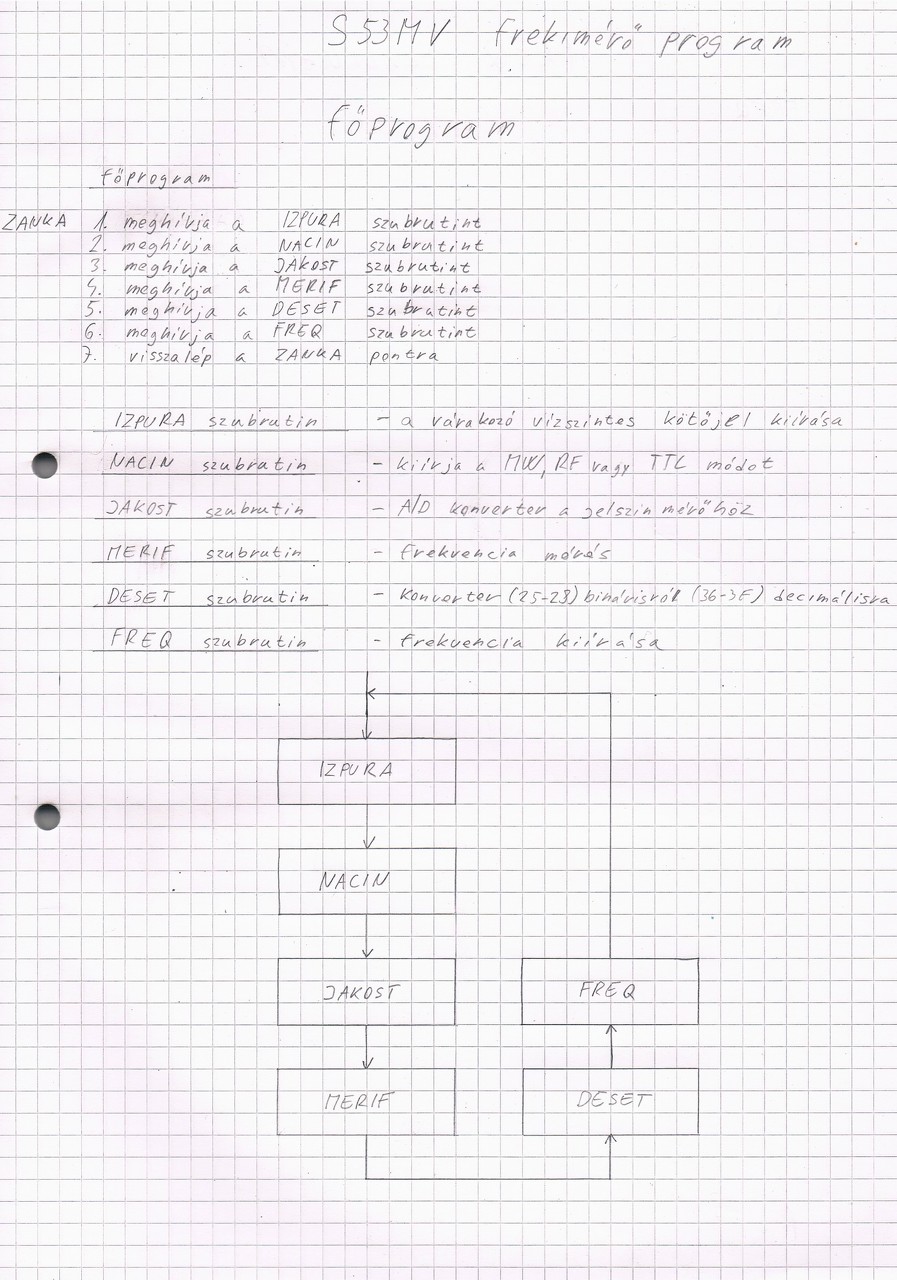 S53MV frekimérő program
főprogram
főprogram
ZANKA 1. meghívja a IZPURA szubrutint
2. meghívja a NACIN szubrutint
3. meghívja a JAKOST szubrutint
4. meghívja a MERIF szubrutint
5. meghívja a DESET szubrutint
6. meghívja a FREQ szubrutint
7. visszalép a ZANKA pontra
IZPURA szubrutin - a várakozó vízszintes kötőjel kiírása
NACIN szubrutin - kiírja a MW, RF vagy TTL módot
JAKOST szubrutin - A/D konverter a jelszin mérőhöz
MERIF szubrutin - frekvencia mérés
DESET szubrutin - konverter (25-28) binárisról (36-3E) decimálisra
FREQ szubrutin - frekvencia kiírása
IZPURA
NACIN
JAKOST
FREQ
MERIF
DESET